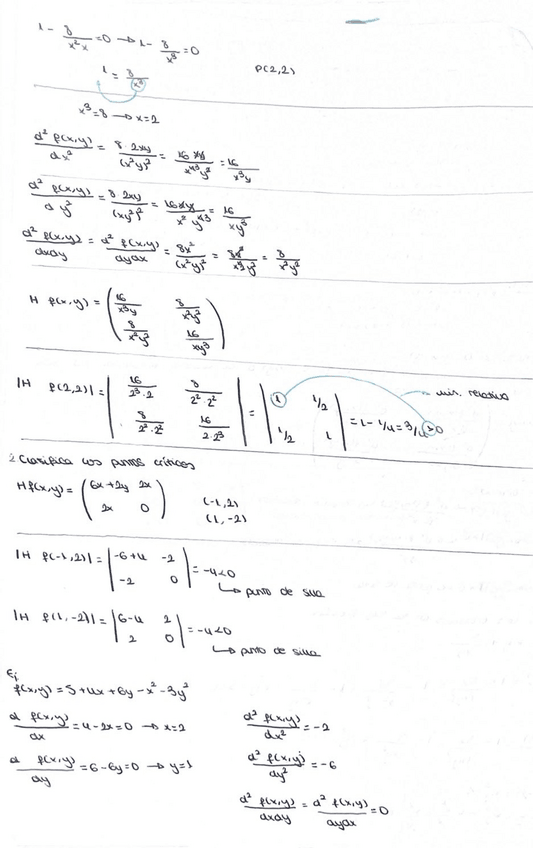 1 - 8/(x²x) = 0 → 1 - 8/x³ = 0
1 = 8/x³    P(2,2)
x³ = 8 → x = 2
d² f(x,y)/dx² = 8·2xy/(x²y)² = 16xy/(x⁴y²) = 16/(x³y)
d² f(x,y)/dy² = 8·2xy/(xy²)² = 16xy/(x²y⁴) = 16/(xy³)
d² f(x,y)/dxdy = d² f(x,y)/dydx = 8x²/(x²y)² = 8x²/(x⁴y²) = 8/(x²y²)
H f(x,y) = ( 16/(x³y)  8/(x²y²) ; 8/(x²y²)  16/(xy³) )
|H f(2,2)| = | 16/(2³·2)  8/(2²·2²) ; 8/(2²·2²)  16/(2·2³) | = | 1  1/2 ; 1/2  1 | = 1 - 1/4 = 3/4 > 0    mín. relativo
2 Clasifica los puntos críticos
H f(x,y) = ( 6x+2y  2x ; 2x  0 )    (-1,2)
(1,-2)
|H f(-1,2)| = | -6+4  -2 ; -2  0 | = -4<0
↳ punto de silla
|H f(1,-2)| = | 6-4  2 ; 2  0 | = -4<0
↳ punto de silla
Ej
f(x,y) = 5+4x+6y-x²-3y²
d f(x,y)/dx = 4-2x=0 → x=2    d² f(x,y)/dx² = -2
d f(x,y)/dy = 6-6y=0 → y=1    d² f(x,y)/dy² = -6
d² f(x,y)/dxdy = d² f(x,y)/dydx = 0